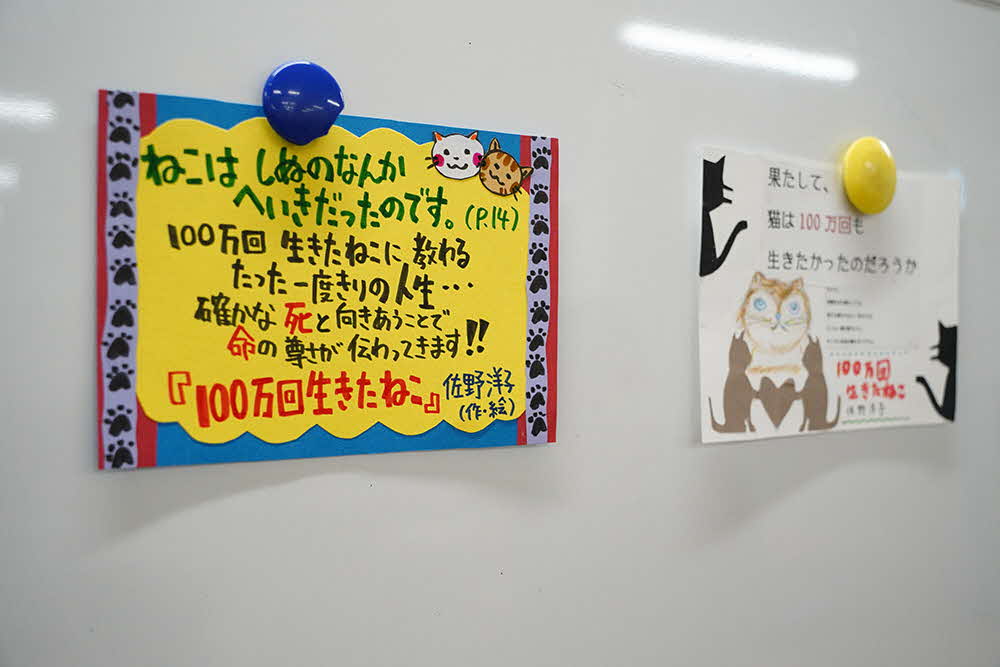 ねこは しぬのなんか
へいきだったのです。(P.14)
100万回 生きたねこに 教わる
たった一度きりの人生…
確かな 死と向きあうことで
命の尊さが伝わってきます!!
『100万回生きたねこ』 佐野洋子
(作・絵)
果たして、
猫は100万回も
生きたかったのだろうか
100万回
生きたねこ
佐野洋子